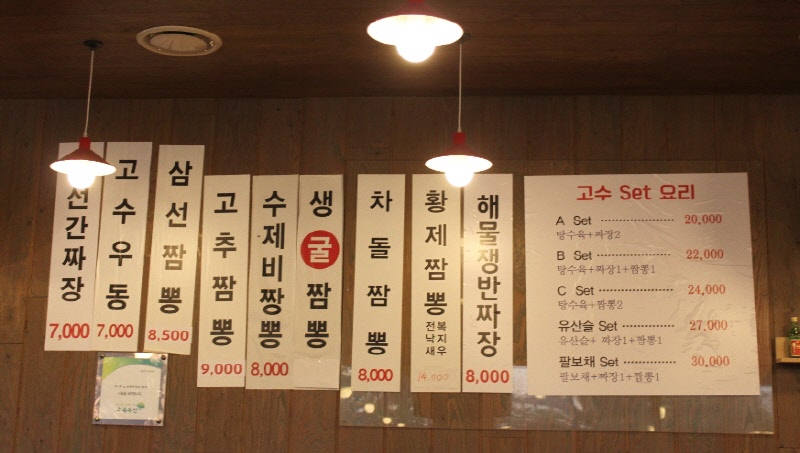 선간짜장
7,000
고수우동
7,000
삼선짬뽕
8,500
고추짬뽕
9,000
수제비짱뽕
8,000
생굴짬뽕
차돌짬뽕
8,000
황제짬뽕
전복
낙지
새우
14,000
해물쟁반짜장
8,000
고수 Set 요리
A Set 20,000
탕수육+짜장2
B Set 22,000
탕수육+짜장1+짬뽕1
C Set 24,000
탕수육+짬뽕2
유산슬 Set 27,000
유산슬+ 짜장1+짬뽕1
팔보채 Set 30,000
팔보채+짜장1+짬뽕1